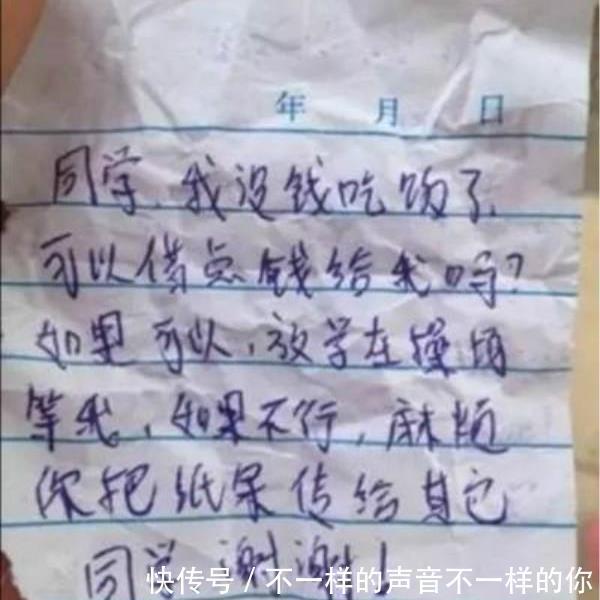 年 月 日
同学,我没钱吃饭了
可以借点钱给我吗?
如果可以,放学在操场
等我,如果不行,麻烦
你把纸条传给其它
同学,谢谢!
快传号/不一样的声音不一样的你